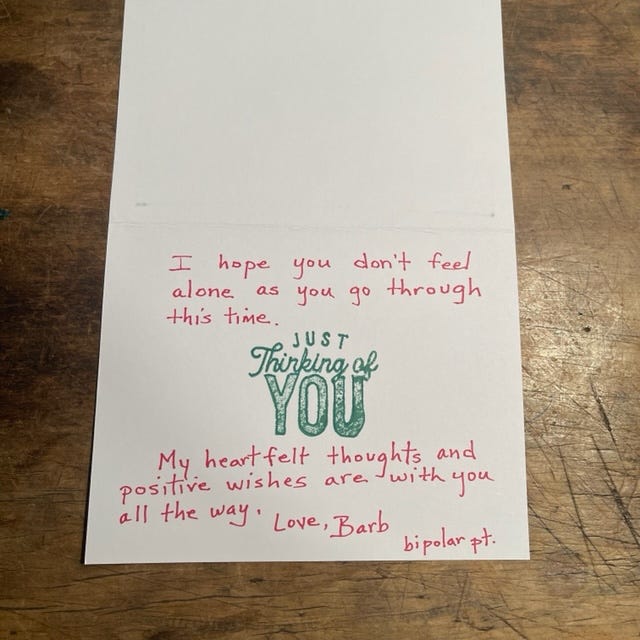 I hope you don't feel
alone as you go through
this time.
JUST
Thinking of
YOU
My heartfelt thoughts and
positive wishes are with you
all the way.
Love, Barb
bipolar pt.